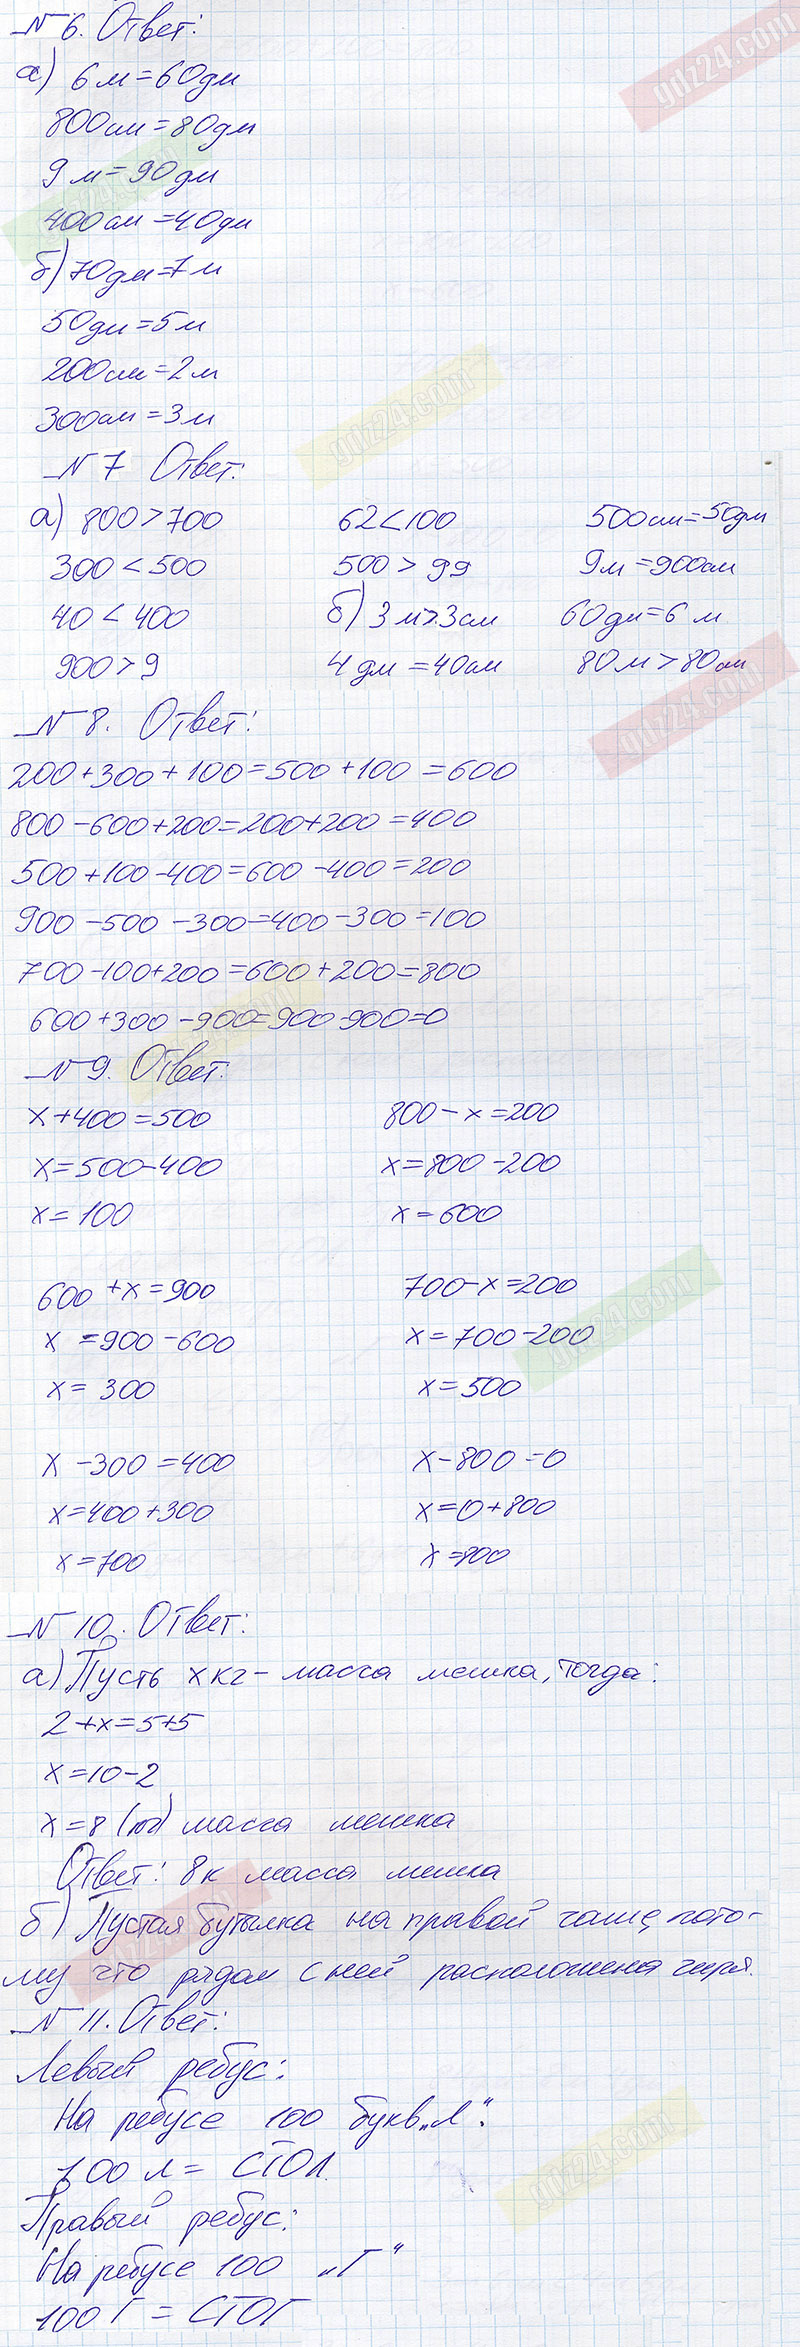 № 6. Ответ:
а) 6 м = 60 дм
800 см = 80 дм
9 м = 90 дм
400 см = 40 дм
б) 70 дм = 7 м
50 дм = 5 м
200 см = 2 м
300 см = 3 м
№ 7 Ответ:
а) 800 > 700 62 < 100 500 см = 50 дм
300 < 500 500 > 99 9 м = 900 см
40 < 400 б) 3 м > 3 см 60 дм = 6 м
900 > 9 4 дм = 40 см 80 м > 80 см
№ 8. Ответ:
200 + 300 + 100 = 500 + 100 = 600
800 - 600 + 200 = 200 + 200 = 400
500 + 100 - 400 = 600 - 400 = 200
900 - 500 - 300 = 400 - 300 = 100
700 - 100 + 200 = 600 + 200 = 800
600 + 300 - 900 = 900 - 900 = 0
№ 9. Ответ:
x + 400 = 500 800 - x = 200
x = 500 - 400 x = 800 - 200
x = 100 x = 600
600 + x = 900 700 - x = 200
x = 900 - 600 x = 700 - 200
x = 300 x = 500
x - 300 = 400 x - 800 = 0
x = 400 + 300 x = 0 + 800
x = 700 x = 800
№ 10. Ответ:
а) Пусть x кг - масса мешка, тогда:
2 + x = 5 + 5
x = 10 - 2
x = 8 (кг) масса мешка
Ответ: 8 к масса мешка
б) Пустая бутылка на правой чаше, пото-
му что рядом с ней расположена гиря.
№ 11. Ответ:
Левый ребус:
На ребусе 100 букв „Л“.
100 л = СТОЛ.
Правый ребус:
На ребусе 100 „Г“
100 Г = СТОГ
gdz24.com
gdz24.com
gdz24.com
gdz24.com
gdz24.com
gdz24.com
gdz24.com
gdz24.com